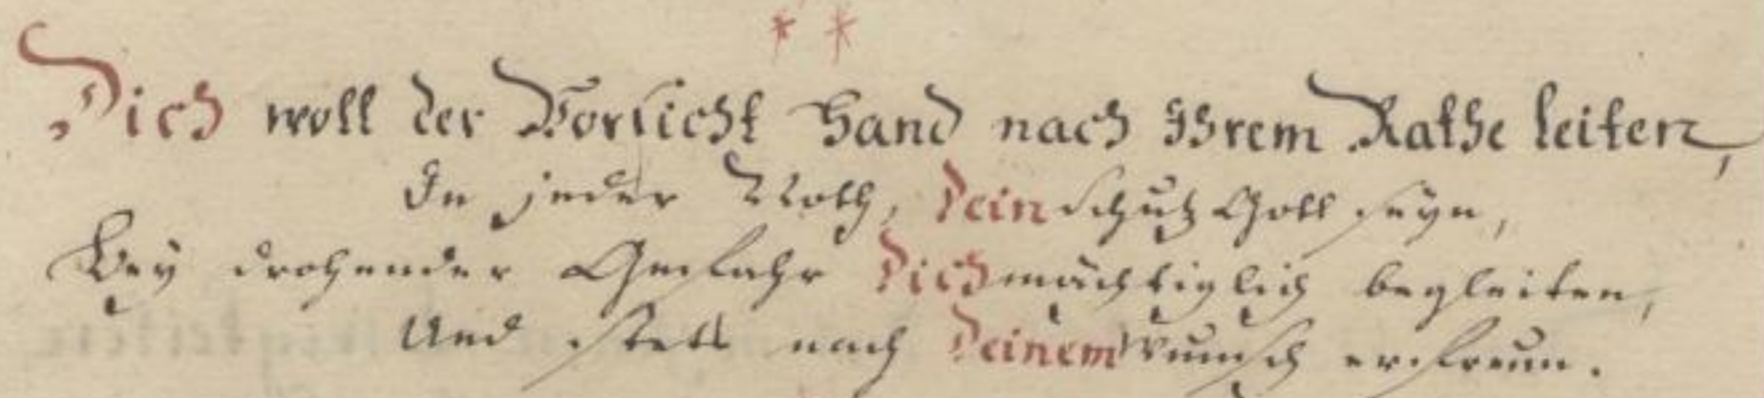 * *
Dich woll der Vorsicht Hand nach Ihrem Rathe leiten,
In jeder Noth, Dein Schutz Gott seyn,
Bey drohender Gefahr Dich mächtiglich begleiten,
Und stets nach Deinem Wunsch erfreun.